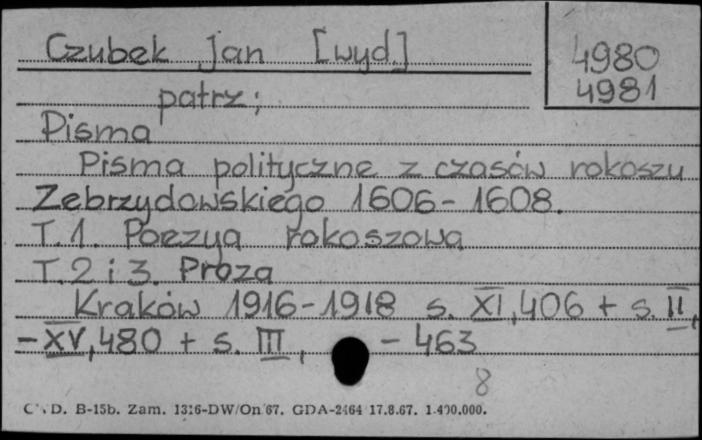 Czubek Jan [wyd.]
4980
4981
patrz;
Pisma
Pisma polityczne z czasów rokoszu
Zebrzydowskiego 1606-1608.
T.1. Poezya rokoszowa
T.2 i 3. Proza
Kraków 1916-1918 s. XI, 406 + s. II,
-XV, 480 + s. III, - 463
8
D. B-15b. Zam. 1316-DW/On/67. GDA-2464 17.8.67. 1.400.000.